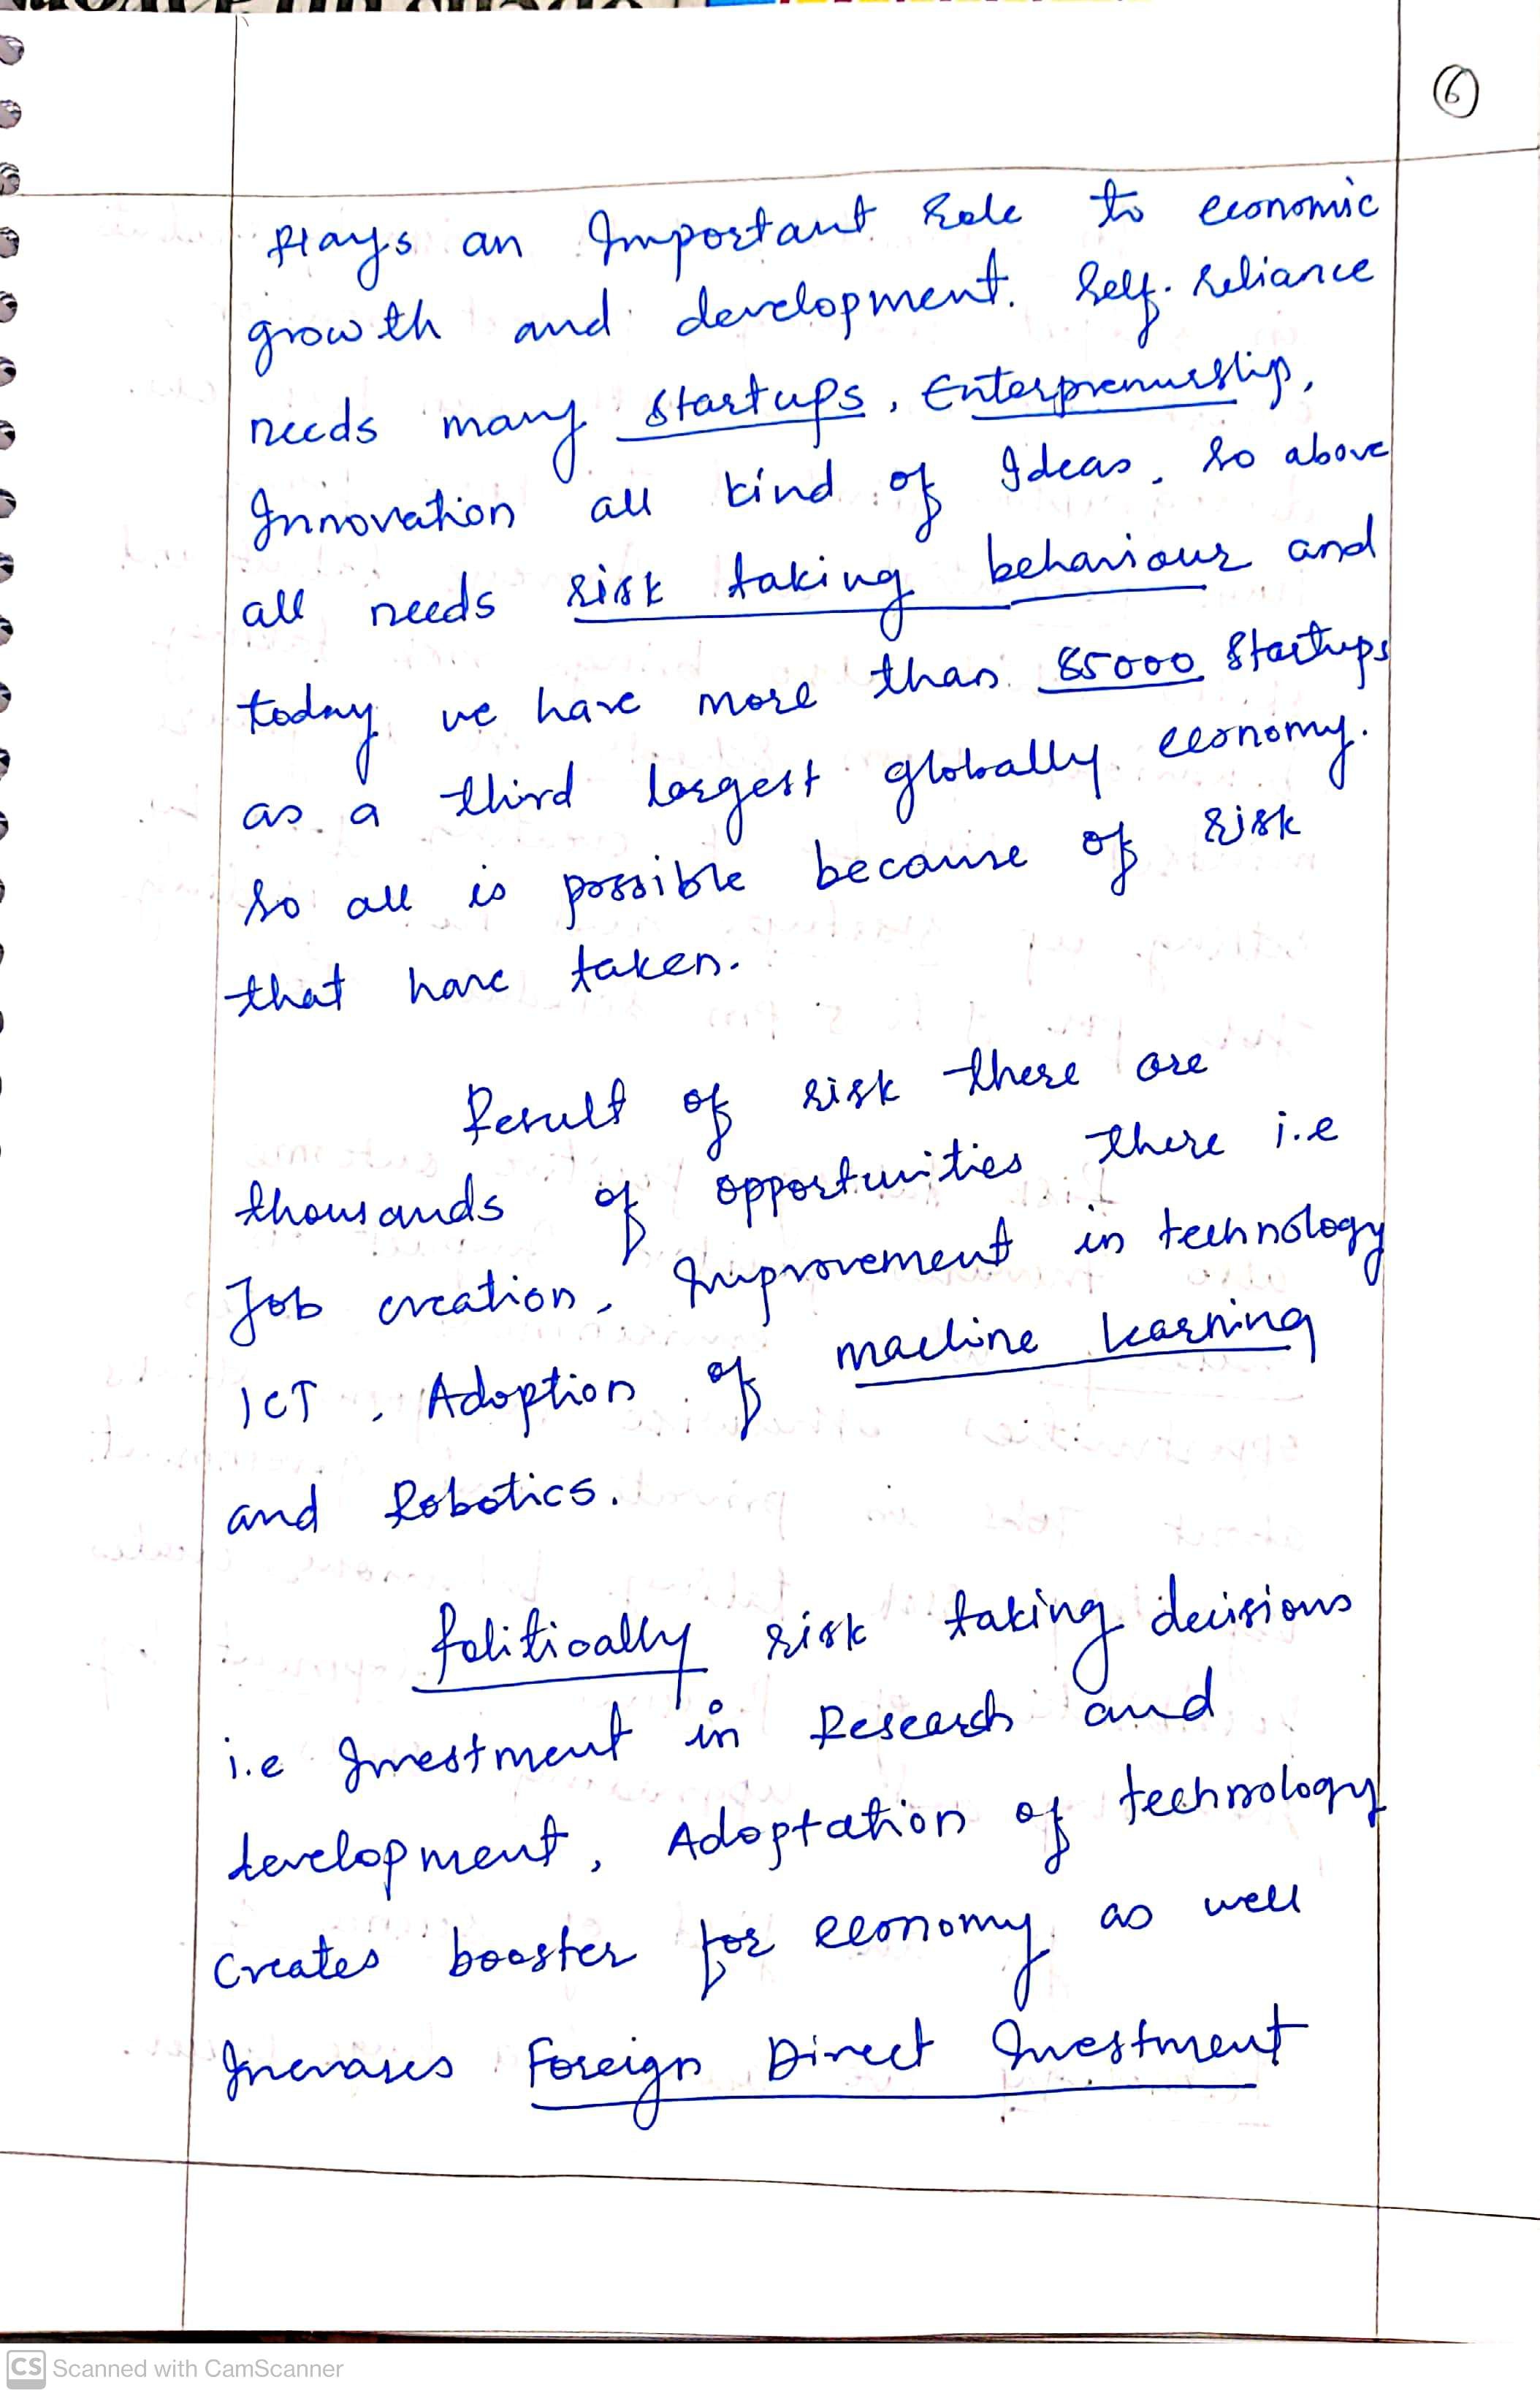 6
Plays an Important Role to economic
growth and development. Self-reliance
needs many startups, Enterprenurship,
Innovation all kind of Ideas. So above
all needs risk taking behaviour and
today we have more than 85000 Startups
as a third largest globally economy.
So all is possible because of risk
that have taken.
Result of risk there are
thousands of opportunities there i.e
Job creation, Improvement in technology
ICT, Adoption of machine learning
and Robotics.
Politically risk taking decisions
i.e Investment in Research and
development, Adoptation of technology
creates booster for economy as well
Increases Foreign Direct Investment
CS Scanned with CamScanner